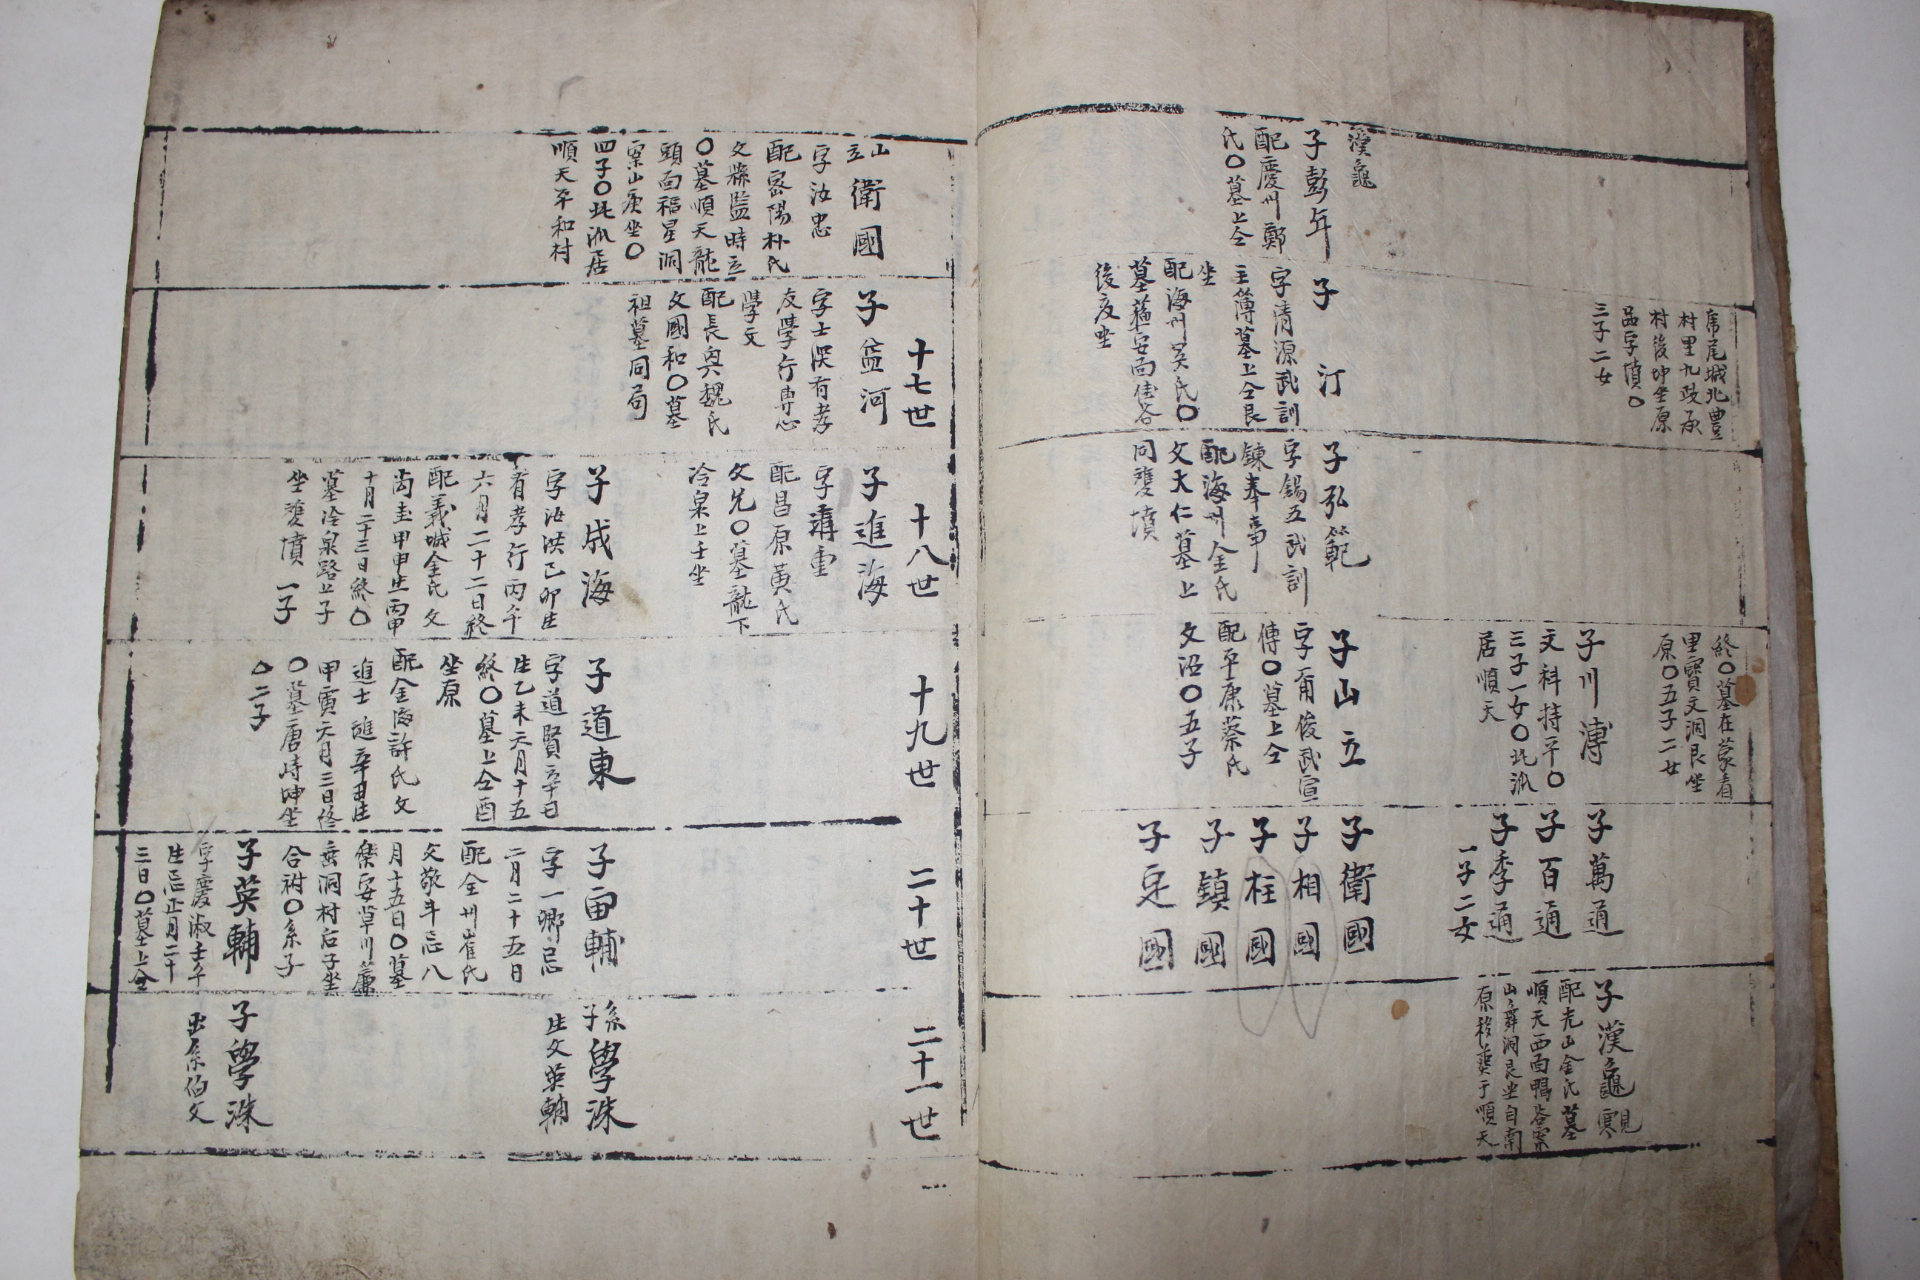 席尾城北豊
村里九政承
村後坤坐原
品字墳○
三子二女
終○墓在蒙看
里寶文洞艮坐
原○五子二女
子川溥
文科持平○
三子一女○北派
居順天
子萬通
子百通
子季通
一子二女
子漢龜見寒
配光山金氏墓
順天西面鴨谷案
山舞洞艮坐自南
原移葬于順天
漢龜
子彭年
配慶州鄭
氏○墓上仝
子汀
字清源武訓
主簿墓上仝艮
坐
配海州吳氏○
墓蘓安面佳谷
後亥坐
子弘範
字錫五武訓
鍊奉事
配海州金氏
父大仁墓上
同雙墳
子山立
字甫俊武宣
傳○墓上仝
配平康蔡氏
父沼○五子
子衛國
子相國
子柱國
子鎮國
子定國
十七世
十八世
十九世
二十世
二十一世
山立
衛國
字汝忠
配密陽朴氏
父縣監時立
○墓順天龍
頭面福星洞
案山庚坐○
四子○北派居
順天平和村
子益河
字士深有孝
友學行專心
學文
配長興魏氏
父國和○墓
祖墓同局
子進海
字溝重
配昌原黃氏
父兌○墓龍下
冷泉上壬坐
子成海
字汝洪己卯生
有孝行丙午
六月二十二日終
配義城金氏父
尚圭甲申生丙申
十月二十三日終○
墓冷泉路上子
坐雙墳 一子
子道東
字道賢辛丑
生乙未元月十五
終○墓上仝酉
坐原
配金海許氏父
進士璡辛丑生
甲寅六月三日終
○墓唐峙坤坐
○二子
子再輔
字一卿忌
二月二十五日
配全州崔氏
父敬斗忌八
月十五日○墓
樂安草川薰
垂洞村后子坐
合祔○系子
子英輔
字慶淑壬午
生忌正月二十
三日○墓上仝
系子學洙
生父英輔
子學洙
出系伯父